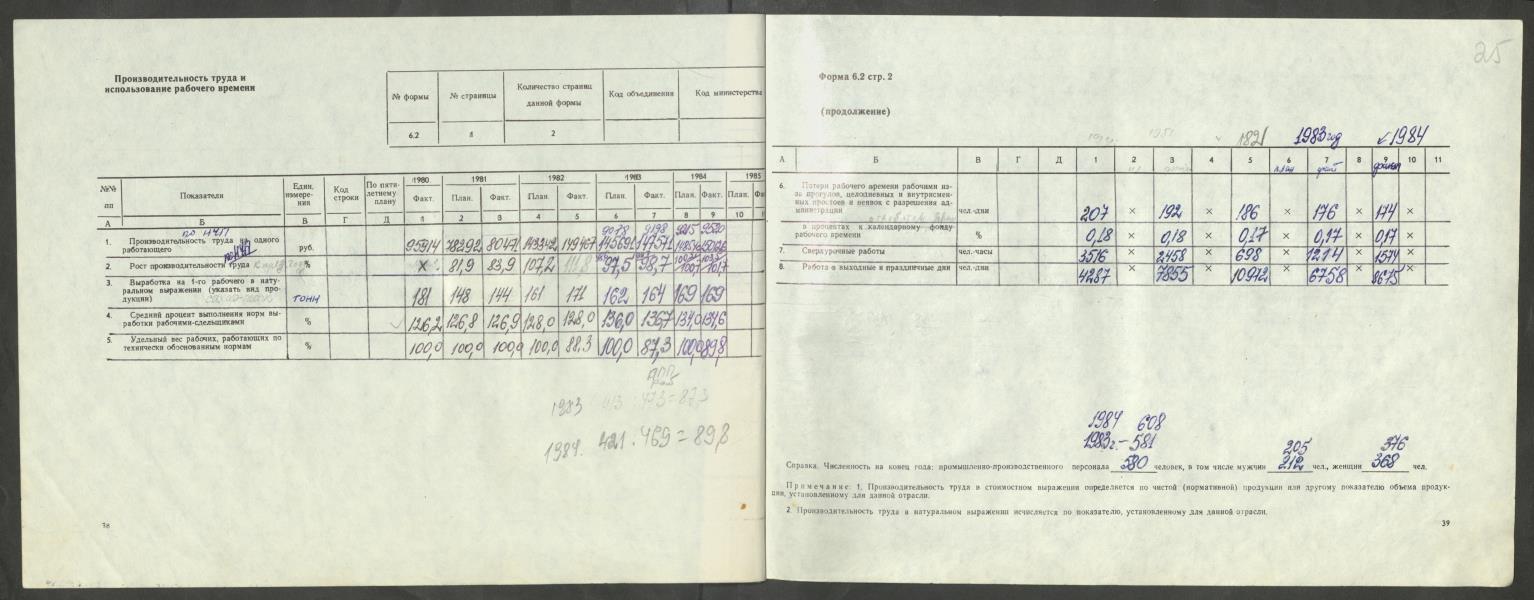 Производительность труда и
использование рабочего времени
№ формы
№ страницы
Количество страниц
данной формы
Код объединения
Код министерства
6.2
1
2
№№
пп
Показатели
Един.
измере-
ния
Код
строки
По пяти-
летнему
плану
1980
1981
1982
1983
1984
1985
Факт. План. Факт. План. Факт. План. Факт. План. Факт. План.
А Б В Г Д 1 2 3 4 5 6 7 8 9 10
по НЧП
9078 9198 9215 9520
1. Производительность труда на одного
работающего руб. 95914 78392 80471 143342 149467 145691 147571
2. Рост производительности труда % × 81,9 83,9 107,2 111,8 97,5 98,7 100,7 101,7
3. Выработка на 1-го рабочего в нату-
ральном выражении (указать вид про-
дукции) тонн 181 148 144 161 171 162 164 169 169
4. Средний процент выполнения норм вы-
работки рабочими-сдельщиками % 126,2 126,8 126,9 128,0 128,0 136,0 136,7 134,0 134,6
5. Удельный вес рабочих, работающих по
технически обоснованным нормам % 100,0 100,0 100,0 100,0 88,3 100,0 87,3 100,0 89,8
1983 413 : 473 = 87,3
1984. 421 : 469 = 89,8
38
25
Форма 6.2 стр. 2
(продолжение)
1821 1983 год 1984
А Б В Г Д 1 2 3 4 5 6 7 8 9 10 11
план факт факт
6. Потери рабочего времени рабочими из-
за прогулов, целодневных и внутрисмен-
ных простоев и неявок с разрешения ад-
министрации чел.-дни 207 × 192 × 186 × 176 × 174 ×
в процентах к календарному фонду
рабочего времени % 0,18 × 0,18 × 0,17 × 0,17 × 0,17 ×
7. Сверхурочные работы чел.-часы 3516 × 2458 × 698 × 1214 × 1574 ×
8. Работа в выходные и праздничные дни чел.-дни 4287 × 7855 × 10942 × 6758 × 8675 ×
1984 608
1983г. – 581
205 376
Справка. Численность на конец года: промышленно-производственного персонала 580 человек, в том числе мужчин 212 чел., женщин 368 чел.
Примечание: 1. Производительность труда в стоимостном выражении определяется по чистой (нормативной) продукции или другому показателю объема продук-
ции, установленному для данной отрасли.
2. Производительность труда в натуральном выражении исчисляется по показателю, установленному для данной отрасли.
39